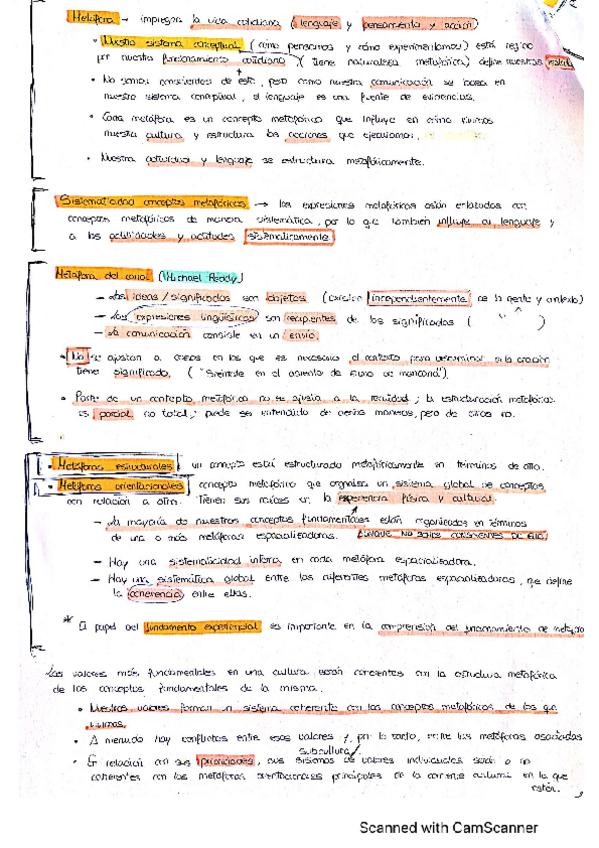 Metáfora → impregna la vida cotidiana (lenguaje y pensamiento y acción)
• Nuestro sistema conceptual (cómo pensamos y cómo experimentamos) está regido
por nuestro funcionamiento cotidiano (tiene naturaleza metafórica) define nuestras
• No somos conscientes de esto, pero como nuestra comunicación se basa en
nuestro sistema conceptual, el lenguaje es una fuente de evidencias.
• Cada metáfora es un concepto metafórico que influye en cómo vivimos
nuestra cultura y estructura las acciones que ejecutamos.
• Nuestra actividad y lenguaje se estructura metafóricamente.
Sistematicidad conceptos metafóricos → las expresiones metafóricas están enlazadas con
conceptos metafóricos de manera sistemática, por lo que también influye al lenguaje y
a las actividades y actitudes sistemáticamente
Metáfora del canal (Michael Reddy)
– Las ideas/significados son objetos (existen independientemente de la gente y contexto)
– Las expresiones lingüísticas son recipientes de los significados ( " )
– La comunicación consiste en un envío.
• No se ajustan a casos en los que es necesario el contexto para determinar si la oración
tiene significado. ("Siéntate en el asiento de zumo de manzana").
• Parte de un concepto metafórico no se ajusta a la realidad; la estructuración metafórica
es parcial no total; puede ser entendido de varias maneras, pero de otras no.
• Metáforas estructurales: un concepto está estructurado metafóricamente en términos de otro.
• Metáforas orientacionales: concepto metafórico que organiza un sistema global de conceptos
con relación a otro. Tienen sus raíces en la experiencia física y cultural.
– La mayoría de nuestros conceptos fundamentales están organizados en términos
de una o más metáforas espacializadoras. AUNQUE NO SOMOS CONSCIENTES DE ELLO
– Hay una sistematicidad interna en cada metáfora espacializadora.
– Hay una sistemática global entre las diferentes metáforas espacializadoras, que define
la coherencia entre ellas.
* El papel del fundamento experiencial es importante en la comprensión del funcionamiento de
Los valores más fundamentales en una cultura serán coherentes con la estructura metafórica
de los conceptos fundamentales de la misma.
• Nuestros valores forman un sistema coherente con los conceptos metafóricos de los que
vivimos.
• A menudo hay conflictos entre esos valores y, por lo tanto, entre las metáforas asociadas
subcultura
• En relación con sus prioridades, sus sistemas de valores individuales serán o no
coherentes con las metáforas orientacionales principales de la corriente cultural en la que
están.
Scanned with CamScanner